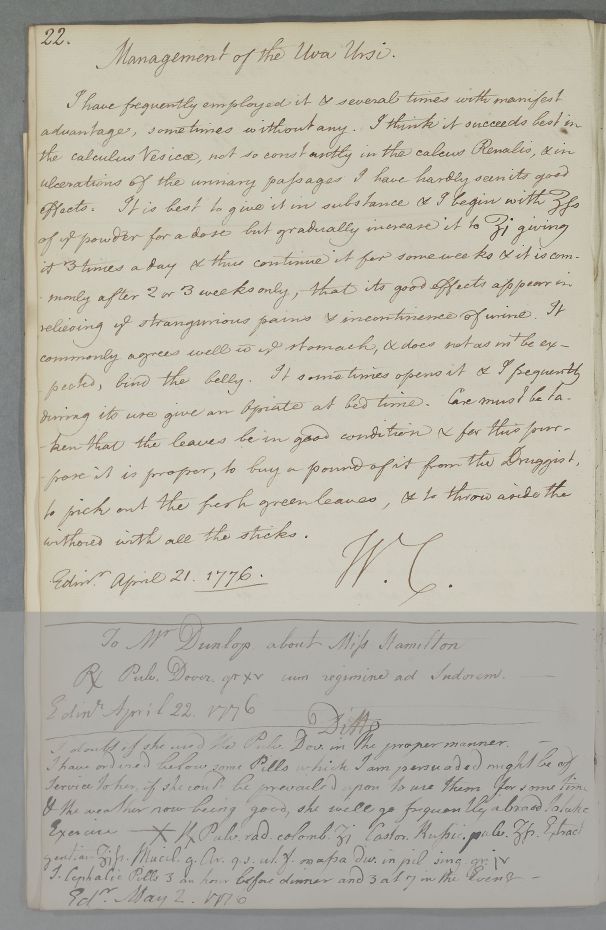 22.
Management of the Uva Ursi.
I have frequently employed it & several times with manifest
advantages, sometimes without any. I think it succeeds best in
the calculus Vesicæ, not so constantly in the calcus Renalis, & in
ulcerations of the urinary passages I have hardly seen its good
effects. It is best to give it in substance & I begin with ʒſs
of yͤ powder for a dose but gradually increase it to ʒj giving
it 3 times a day & thus continue it for some weeks & it is com-
-monly after 2 or 3 weeks only, that its good effects appear in
relieving yͤ strangurious pains & incontinence of urine. It
commonly agrees well w̄ yͤ stomach, & does not as mͭ be ex-
-pected, bind the belly. It sometimes opens it & I frequently
during its use give an Opiate at bed time. Care must be ta-
-ken that the leaves be in good condition & for this pur-
-pose it is proper, to buy a pound of it from the Druggist,
to pick out the fresh green leaves, & to throw aside the
withered with all the sticks.
Edinʳ. April 21. 1776.
W. C.
To Mʳ Dunlop about Miſs Hamilton
℞ Pulv. Dover. gr xv cum regimine ad Sudorem.
Edinʳ April 22. 1776
Ditto
I doubt if she used the Pulv. Dov. in the proper manner.
I have ordered below some Pills which I am persuaded might be of
Service to her, if she could be prevailed upon to use them for some time
& the weather now being good, she will go frequently abroad & take
Exercise — ℞ Pulv. rad. colomb. ʒj Castor. Russic. pulv. ʒſs. Extract
gentian ʒiſs. Mucil. g. Ar. q.s. ut f. massa div. in pil sing. gr. iv
S. Cephalic Pills 3 an hour before dinner and 3 at 7 in the Eveng
Edʳ. May 2. 1776